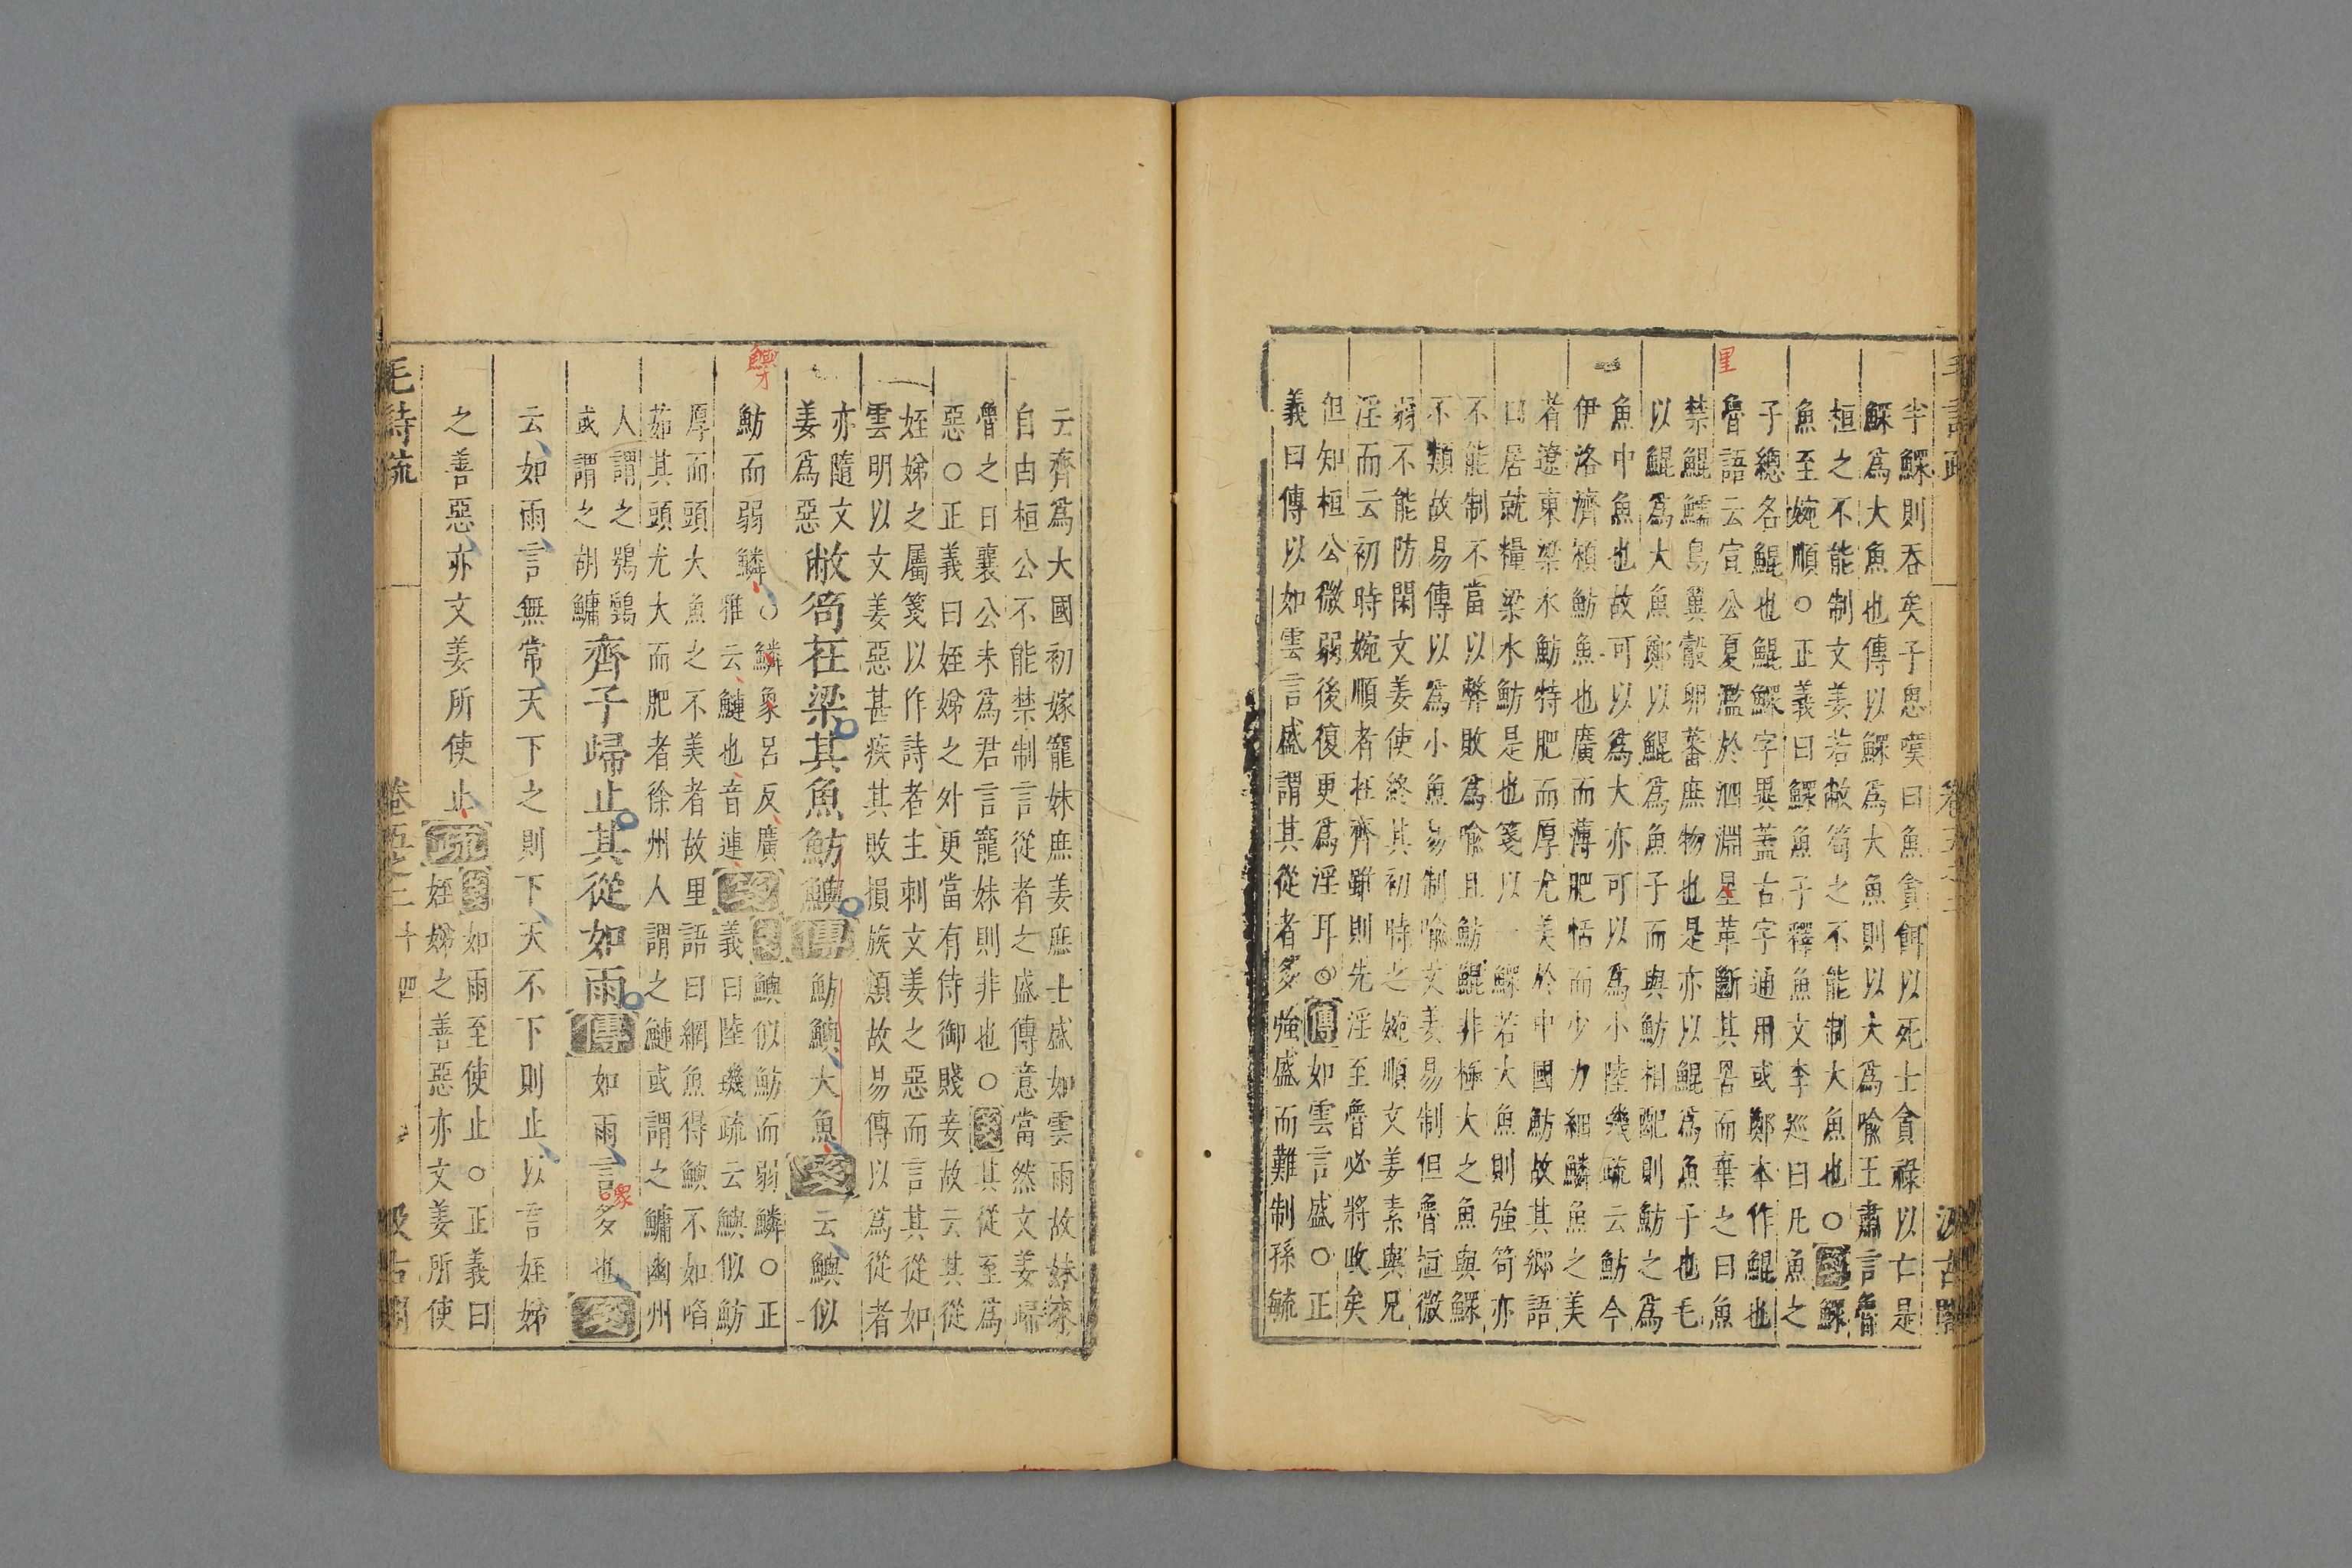 毛詩疏 卷五之二 汲古閣
半鰥則吞矣子思嘆曰魚貪餌以死士貪祿以亡是
鰥爲大魚也傳以鰥爲大魚則以大爲喻王肅言魯
桓之不能制文姜若敝笱之不能制大魚也○箋鰥
魚至婉順○正義曰鰥魚子釋魚文李巡曰凡魚之
子總名鯤也鯤鰥字異蓋古字通用或鄭本作鯤也
里
魯語云宣公夏濫於泗淵星革斷其罟而棄之曰魚
禁鯤鱬鳥翼鷇卵蕃庶物也是亦以鯤爲魚子也毛
以鯤爲大魚鄭以鯤爲魚子而與魴相配則魴之爲
魚中魚也故可以爲大亦可以爲小陸機疏云魴今
伊洛濟潁魴魚也廣而薄肥恬而少力細鱗魚之美
者遼東梁水魴特肥而厚尤美於中國魴故其鄉語
曰居就糧梁水魴是也箋以一鰥若大魚則強笱亦
不能制不當以弊敗爲喻且魴鯤非極大之魚與鰥
不類故易傳以爲小魚易制喻文姜易制但魯桓微
弱不能防閑文姜使終其初時之婉順文姜素與兄
淫而云初時婉順者在齊雖則先淫至魯必將改矣
但知桓公微弱後復更爲淫耳○傳如雲言盛○正
義曰傳以如雲言盛謂其從者多強盛而難制孫毓
云齊爲大國初嫁寵妹庶姜庶士盛如雲雨故妹來
自由桓公不能禁制言從者之盛傳意當然文姜歸
魯之日襄公未爲君言寵妹則非也○箋其從至爲
惡○正義曰姪娣之外更當有侍御賤妾故云其從
姪娣之屬箋以作詩者主刺文姜之惡而言其從如
雲明以文姜惡甚疾其敗損族類故易傳以爲從者
亦隨文
姜爲惡
敝笱在梁其魚魴鱮傳魴鱮大魚箋云鱮似
魴而弱鱗
○鱮象呂反廣
雅云鰱也音連
疏
箋鱮似魴而弱鱗○正
義曰陸機疏云鱮似魴
厚而頭大魚之不美者故里語曰網魚得鱮不如啗
茹其頭尤大而肥者徐州人謂之鰱或謂之鱅幽州
人謂之鴞鸋
或謂之胡鱅
齊子歸止其從如雨傳如雨言多也箋
衆
云如雨言無常天下之則下天不下則止以言姪娣
之善惡亦文姜所使止疏
箋如雨至使止○正義曰
姪娣之善惡亦文姜所使
毛詩疏 卷五之二 十四 汲古閣